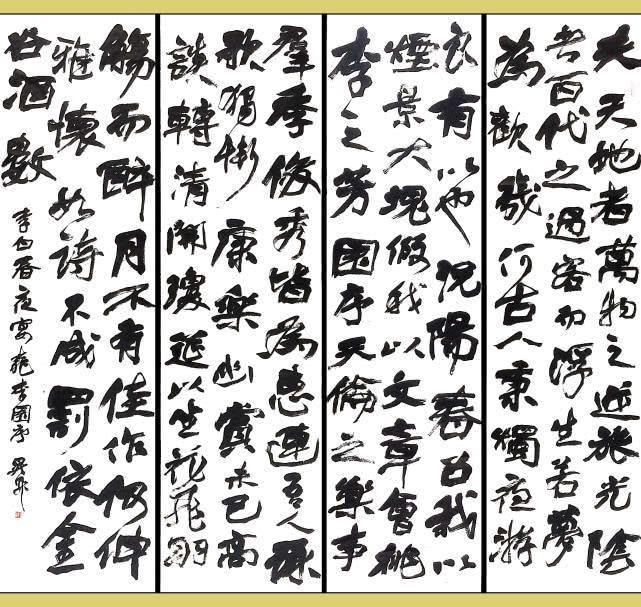 夫天地者萬物之逆旅光陰
者百代之過客而浮生若夢
為歡幾何古人秉燭夜游
良有以也況陽春召我以
煙景大塊假我以文章會桃
李之芳園序天倫之樂事
羣季俊秀皆為惠連吾人詠
歌獨慚康樂幽賞未已高
談轉清開瓊筵以坐花飛羽
觴而醉月不有佳作何伸
雅懷如詩不成罰依金
谷酒數
李白春夜宴桃李園序